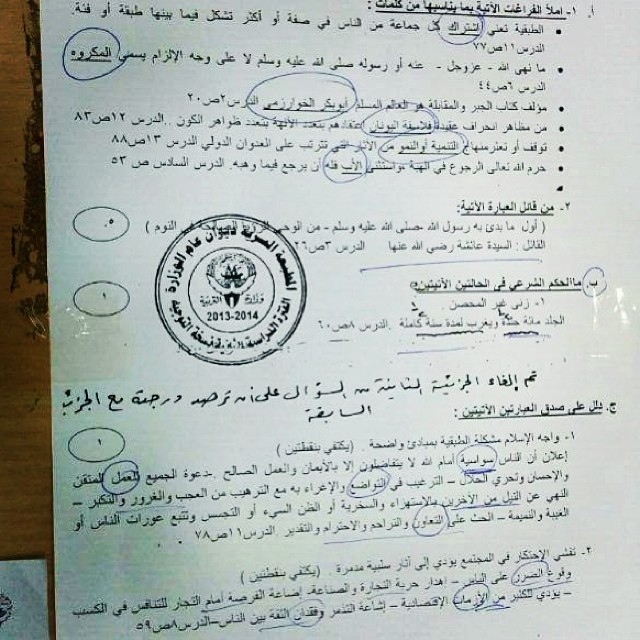 أ. ١- املأ الفراغات الآتية بما يناسبها من كلمات :
• الطبقية تعني إشتراك كل جماعة من الناس في صفة أو أكثر تشكل فيما بينها طبقة أو فئة. الدرس١١ص٧٧
• ما نهى الله - عزوجل - عنه أو رسوله صلى الله عليه وسلم لا على وجه الإلزام يسمى المكروه الدرس ٦ص٤٤
• مؤلف كتاب الجبر والمقابلة هو العالم المسلم أبوبكر الخوارزمي الدرس٢ص٢٠
• من مظاهر انحراف عقيدة فلاسفة اليونان اعتقادهم بتعدد الآلهة بتعدد ظواهر الكون ..الدرس ١٢ص٨٣
• توقف أو تعثرمنهاج التنمية أوالنمو من الآثار التي تترتب على العدوان الدولي الدرس ١٣ص٨٨
• حرم الله تعالى الرجوع في الهبة ،واستثنى الأب فله أن يرجع فيما وهبه. الدرس السادس ص ٥٣
•
٢- من قائل العبارة الآتية:
( أول ما بدئ به رسول الله -صلى الله عليه وسلم - من الوحي الرؤيا الصالحة في النوم )
القائل : السيدة عائشة رضي الله عنها الدرس ٣ص٢٦
ب) ماالحكم الشرعي في الحالتين الآتيتين:
١- زنى غير المحصن .
الجلد مائة جلدة ويغرب لمدة سنة كاملة .الدرس ٨ص٦٠
تم إلغاء الجزئية الثانية من السؤال على أن ترصد درجة مع الجزئية
السابقة
ج. دلل على صدق العبارتين الآتيتين :
١- واجه الإسلام مشكلة الطبقية بمبادئ واضحة . (يكتفي بنقطتين )
إعلان أن الناس سواسية أمام الله لا يتفاضلون إلا بالأيمان والعمل الصالح .-دعوة الجميع للعمل المتقن
والإحسان وتحري الحلال – الترغيب في التواضع والإغراء به مع الترهيب من العجب والغرور والتكبر –
النهي عن النيل من الآخرين بالاستهزاء والسخرية أو الظن السيء أو التجسس وتتبع عورات الناس أو
الغيبة والنميمة – الحث على التعاون والتراحم والاحترام والتقدير .الدرس١١ص٧٨
٢- تفشي الإحتكار في المجتمع يؤدي إلى آثار سلبية مدمرة . (يكتفي بنقطتين )
وقوع الضرر على الناس – إهدار حرية التجارة والصناعة، إضاعة الفرصة أمام التجار للتنافس في الكسب
– يؤدي للكثير من الأزمات الإقتصادية – إشاعة التذمر وفقدان الثقة بين الناس–الدرس٨ص٥٩
٥.
١
١
وزارة التربية
2013-2014